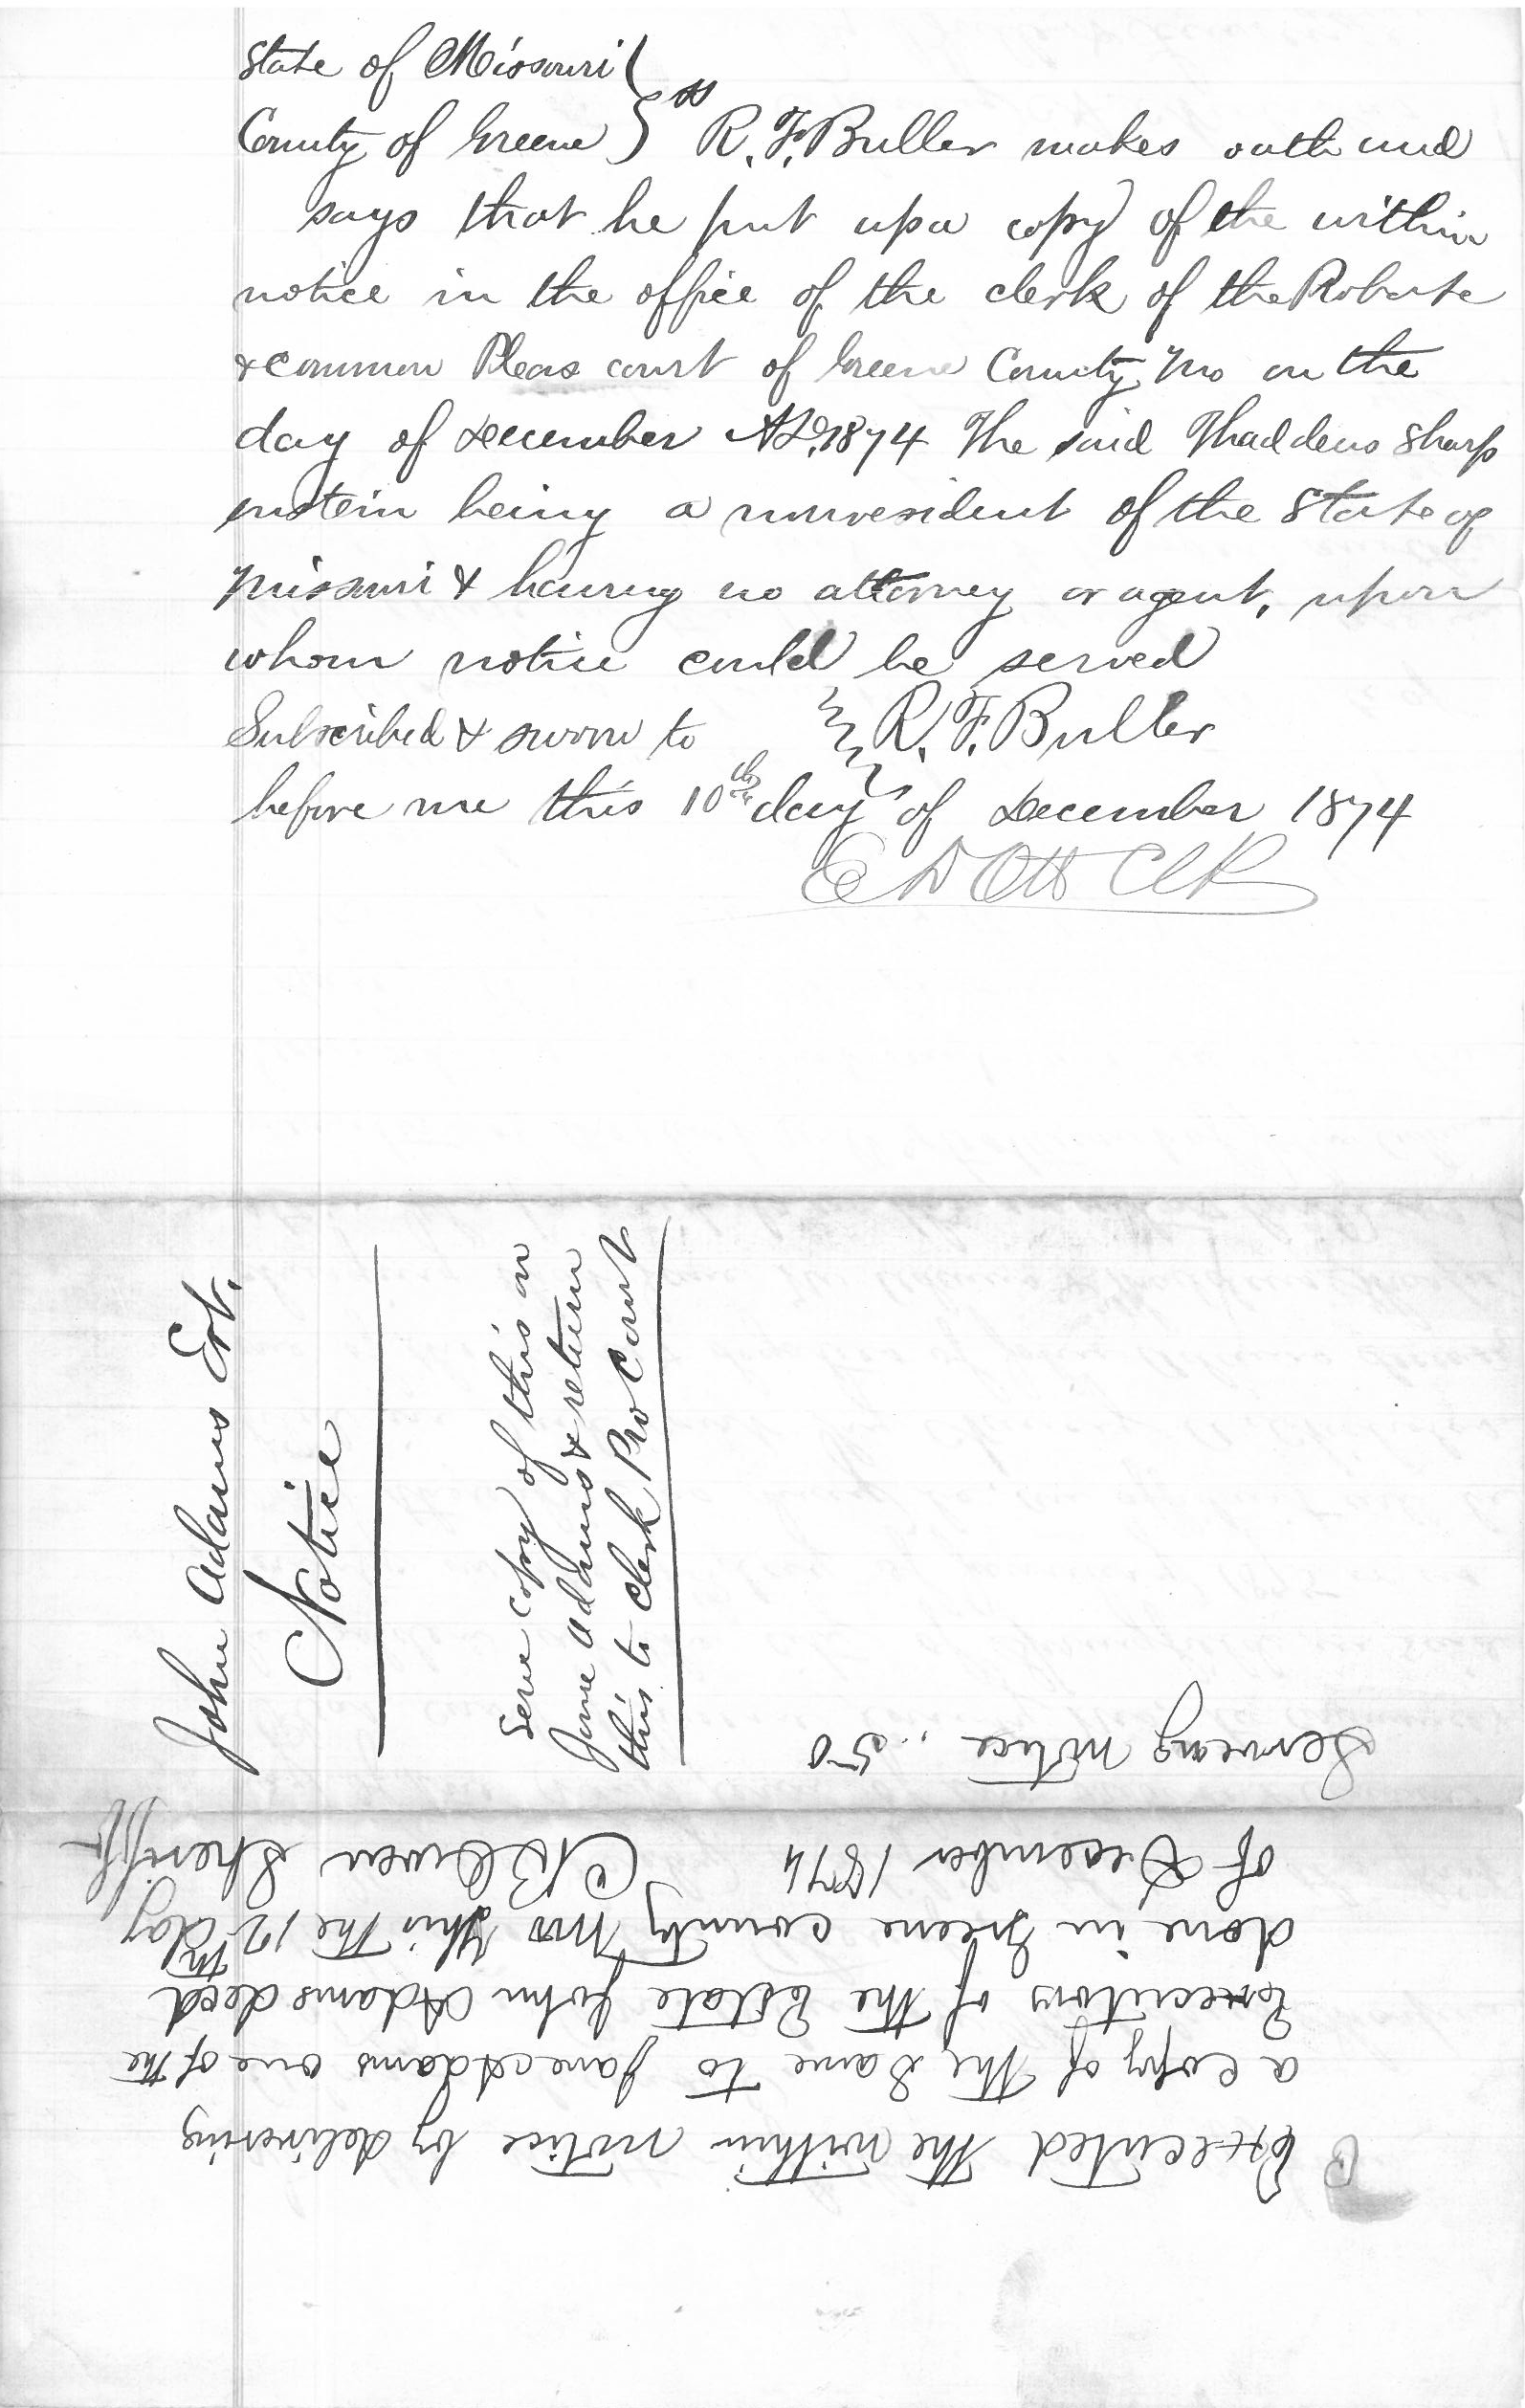 State of Missouri
County of Greene } ss R. F. Buller makes oath and
says that he put up a copy of the within
notice in the office of the clerk of the Probate
& common Pleas court of Greene County Mo on the
day of December AD. 1874 The said Thaddeus Sharp
enstein being a nonresident of the State of
Missouri & having no attorney or agent, upon
whom notice could be served
Subscribed & sworn to R. F. Buller
before me this 10th day of December 1874
E D Ott Clk
John Adams Est.
Notice
Serve copy of this on
Jane Adams & return
this to Clerk Pro Court
Executed the within notice by delivering
a copy of the Same to Jane Adams one of the
Executors of the Estate John Adams decd
done in Greene county Mo this the 12th day
of December 1874 Sheriff
Serveing notice .50